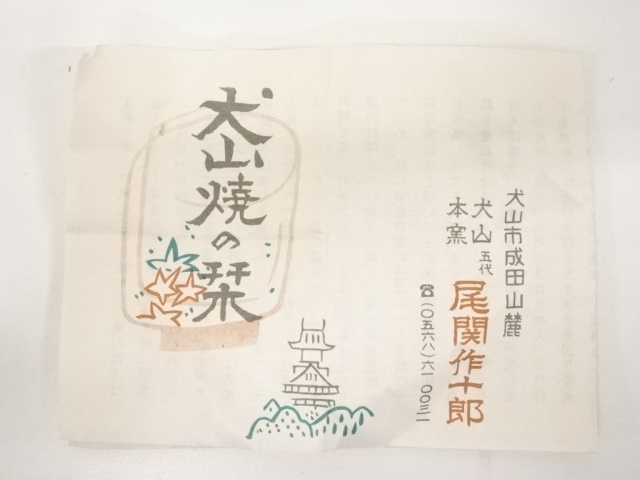 犬山焼の栞
犬山市成田山麓
犬山
本窯
五代
尾関作十郎
☎(〇五六八)六一 〇〇三一